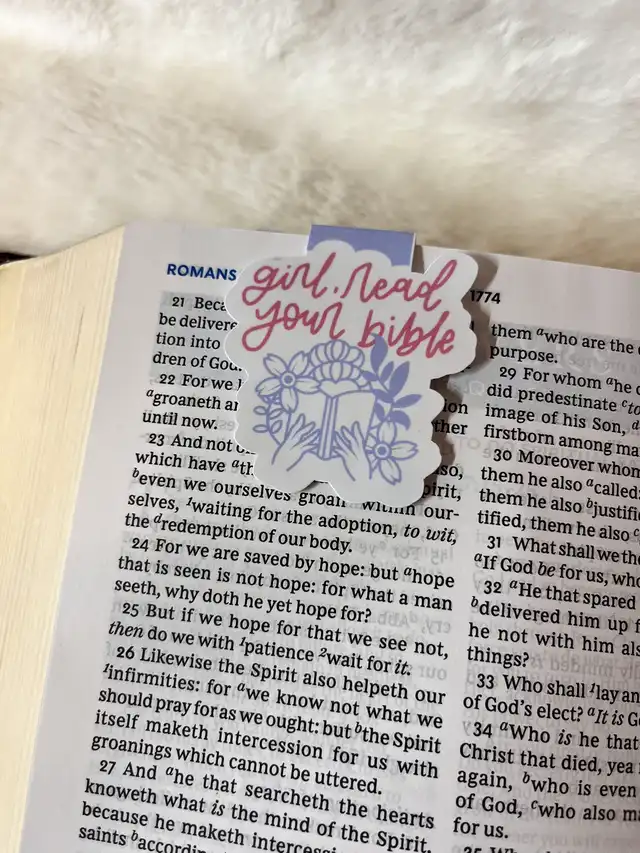 ROMANS
1774
girl, read
your bible
21 Beca
be delivere
tion into
dren of God.
22 For we
ᵃgroaneth an
until now.
23 And not
which have ᵃth
ᵇeven we ourselves groan within our-
selves, ¹waiting for the adoption, to wit,
the ᵈredemption of our body.
24 For we are saved by hope: but ᵃhope
that is seen is not hope: for what a man
seeth, why doth he yet hope for?
25 But if we hope for that we see not,
then do we with ¹patience ²wait for it.
26 Likewise the Spirit also helpeth our
¹infirmities: for ᵃwe know not what we
should pray for as we ought: but ᵇthe Spirit
itself maketh intercession for us with
groanings which cannot be uttered.
27 And ᵃhe that searcheth the hearts
knoweth what is the mind of the Spirit,
because he maketh intercessi
saints ᵇaccordin
ion
ther
so,
pirit,
them ᵃwho are the
purpose.
29 For whom ᵃhe
did predestinate ᶜto
image of his Son,
firstborn among ma
30 Moreover whom
them he also ᵃcalled:
them he also ᵇjustifi
tified, them he also
31 What shall we the
ᵃIf God be for us, who
32 ᵃHe that spared
ᵇdelivered him up f
he not with him als
things?
33 Who shall ¹lay an
of God's elect? ᵃIt is G
34 ᵃWho is he that
Christ that died, yea
again, ᵇwho is even
of God, ᶜwho also m
for us.